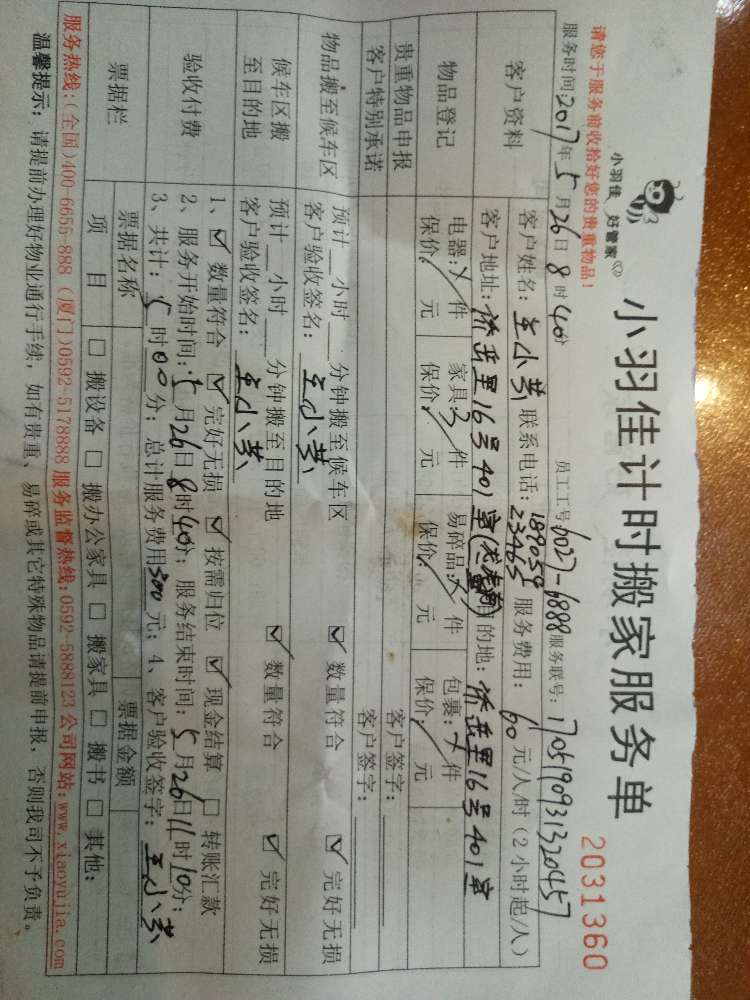 小羽佳 好管家
小羽佳计时搬家服务单
2031360
请您于服务前收拾好您的贵重物品！
员工工号6027-6888 服务联号：1705190931320457
服务时间：2017年5月26日8时40分
客户资料
客户姓名：王小英 联系电话：18905923465 服务费用：60元/人/时（2小时起/人）
客户地址：侨岳里16号401室 目的地：侨岳里16号401室
物品登记
电器：件 家具：3件 易碎品：件 包裹：件
保价：元 保价：元 保价：元 保价：元
贵重物品申报 客户签字：
客户特别承诺 客户签字：
物品搬至候车区
预计 小时 分钟搬至候车区 ☑ 数量符合 ☑ 完好无损
客户验收签名：王小英
候车区搬至目的地
预计 小时 分钟搬至目的地 ☑ 数量符合 ☑ 完好无损
客户验收签名：王小英
验收付费
1、☑ 数量符合 ☑ 完好无损 ☑ 按需归位 ☑ 现金结算 □ 转账汇款
2、服务开始时间：5月26日8时40分；服务结束时间：5月26日11时10分；
3、共计：5时00分；总计服务费用300元；4、客户验收签字：王小英
票据栏
票据名称 票据金额
项目 □ 搬设备 □ 搬办公家具 □ 搬家具 □ 搬书 □ 其他：
服务热线：（全国）400-6655-888 （厦门）0592-5178888 服务监督热线：0592-5888123 公司网站：www.xiaoyujia.com
温馨提示：请提前办理好物业通行手续，如有贵重、易碎或其它特殊物品请提前申报，否则我司不予负责。